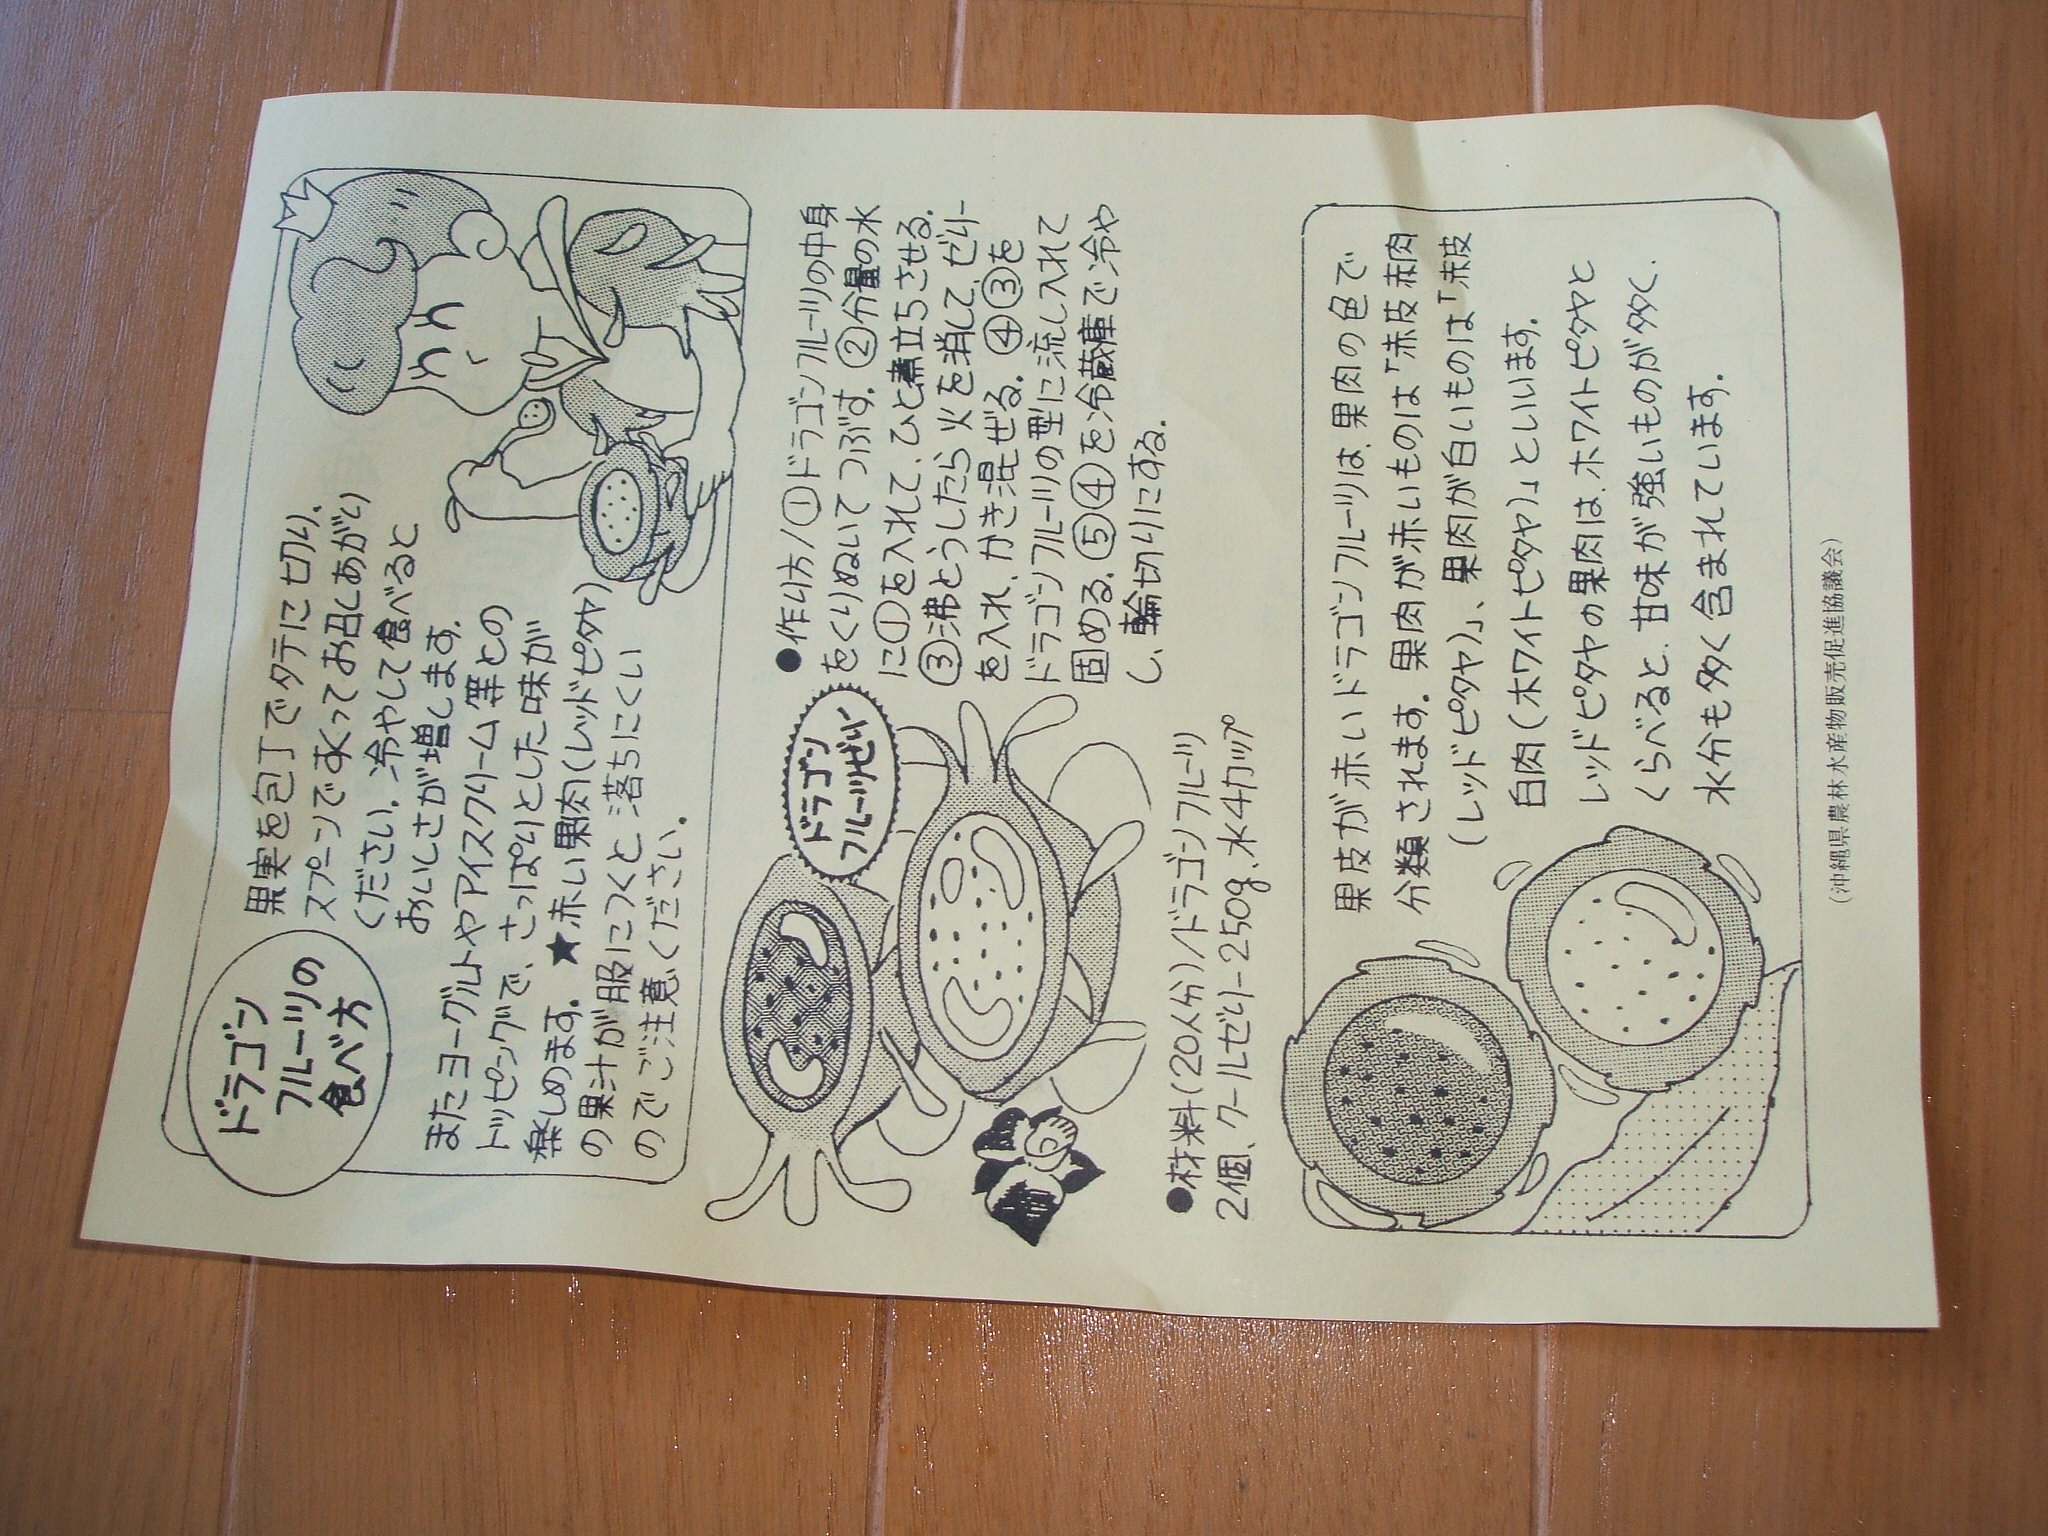 ドラゴン
フルーツの
食べ方
果実を包丁でタテに切り、
スプーンですくってお召しあがり
ください。冷やして食べると
おいしさが増します。
またヨーグルトやアイスクリーム等との
トッピングで、さっぱりとした味が
楽しめます。★赤い果肉(レッドピタヤ)
の果汁が服につくと落ちにくい
のでご注意ください。
ドラゴン
フルーツゼリー
●作り方/①ドラゴンフルーツの中身
をくりぬいてつぶす。②分量の水
に①を入れて、ひと煮立ちさせる。
③沸とうしたら火を消して、ゼリー
を入れ、かき混ぜる。④③を
ドラゴンフルーツの型に流し入れて
固める。⑤④を冷蔵庫で冷や
し、輪切りにする。
●材料(20人分)/ドラゴンフルーツ
2個、クールゼリー250g、水4カップ
果皮が赤いドラゴンフルーツは、果肉の色で
分類されます。果肉が赤いものは「赤皮赤肉
(レッドピタヤ)」、果肉が白いものは「赤皮
白肉(ホワイトピタヤ)」といいます。
レッドピタヤの果肉は、ホワイトピタヤと
くらべると、甘味が強いものが多く、
水分も多く含まれています。
(沖縄県農林水産物販売促進協議会)